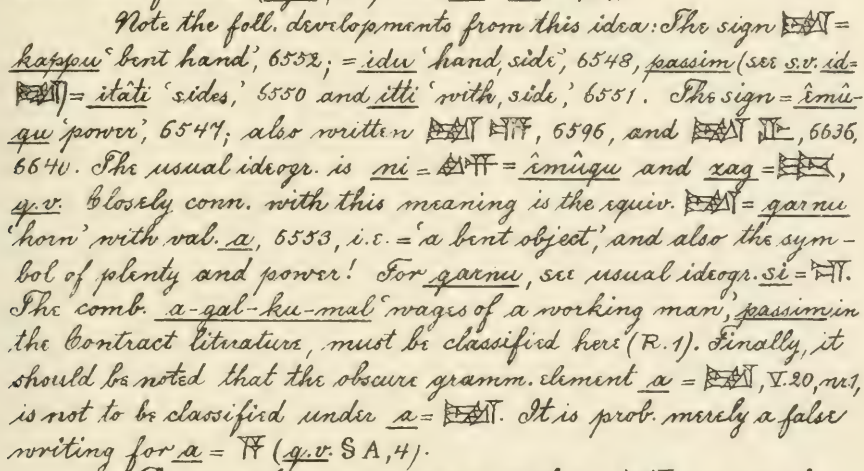 Note the foll. developments from this idea: The sign 𒀉 =
kappu 'bent hand', 6552; = idu 'hand, side', 6548, passim (see s.v. id =
𒀉) = itâti 'sides,' 6550 and itti 'with, side', 6551. The sign = êmû-
qu 'power', 6547; also written 𒀉, 6596, and 𒀉, 6636,
6640. The usual ideogr. is ni = = êmûqu and zag = ,
q.v. Closely conn. with this meaning is the equiv. 𒀉 = qarnu
'horn' with val. a, 6553, i.e. = 'a bent object', and also the sym-
bol of plenty and power! For qarnu, see usual ideogr. si = 𒋛.
The comb. a-gal-ku-mal 'wages of a working man,' passim in
the Contract literature, must be classified here (R.1). Finally, it
should be noted that the obscure gramm. element a = 𒀉, V.20, nr.1,
is not to be classified under a = 𒀉. It is prob. merely a false
writing for a = 𒀀 (q.v. § A, 4).